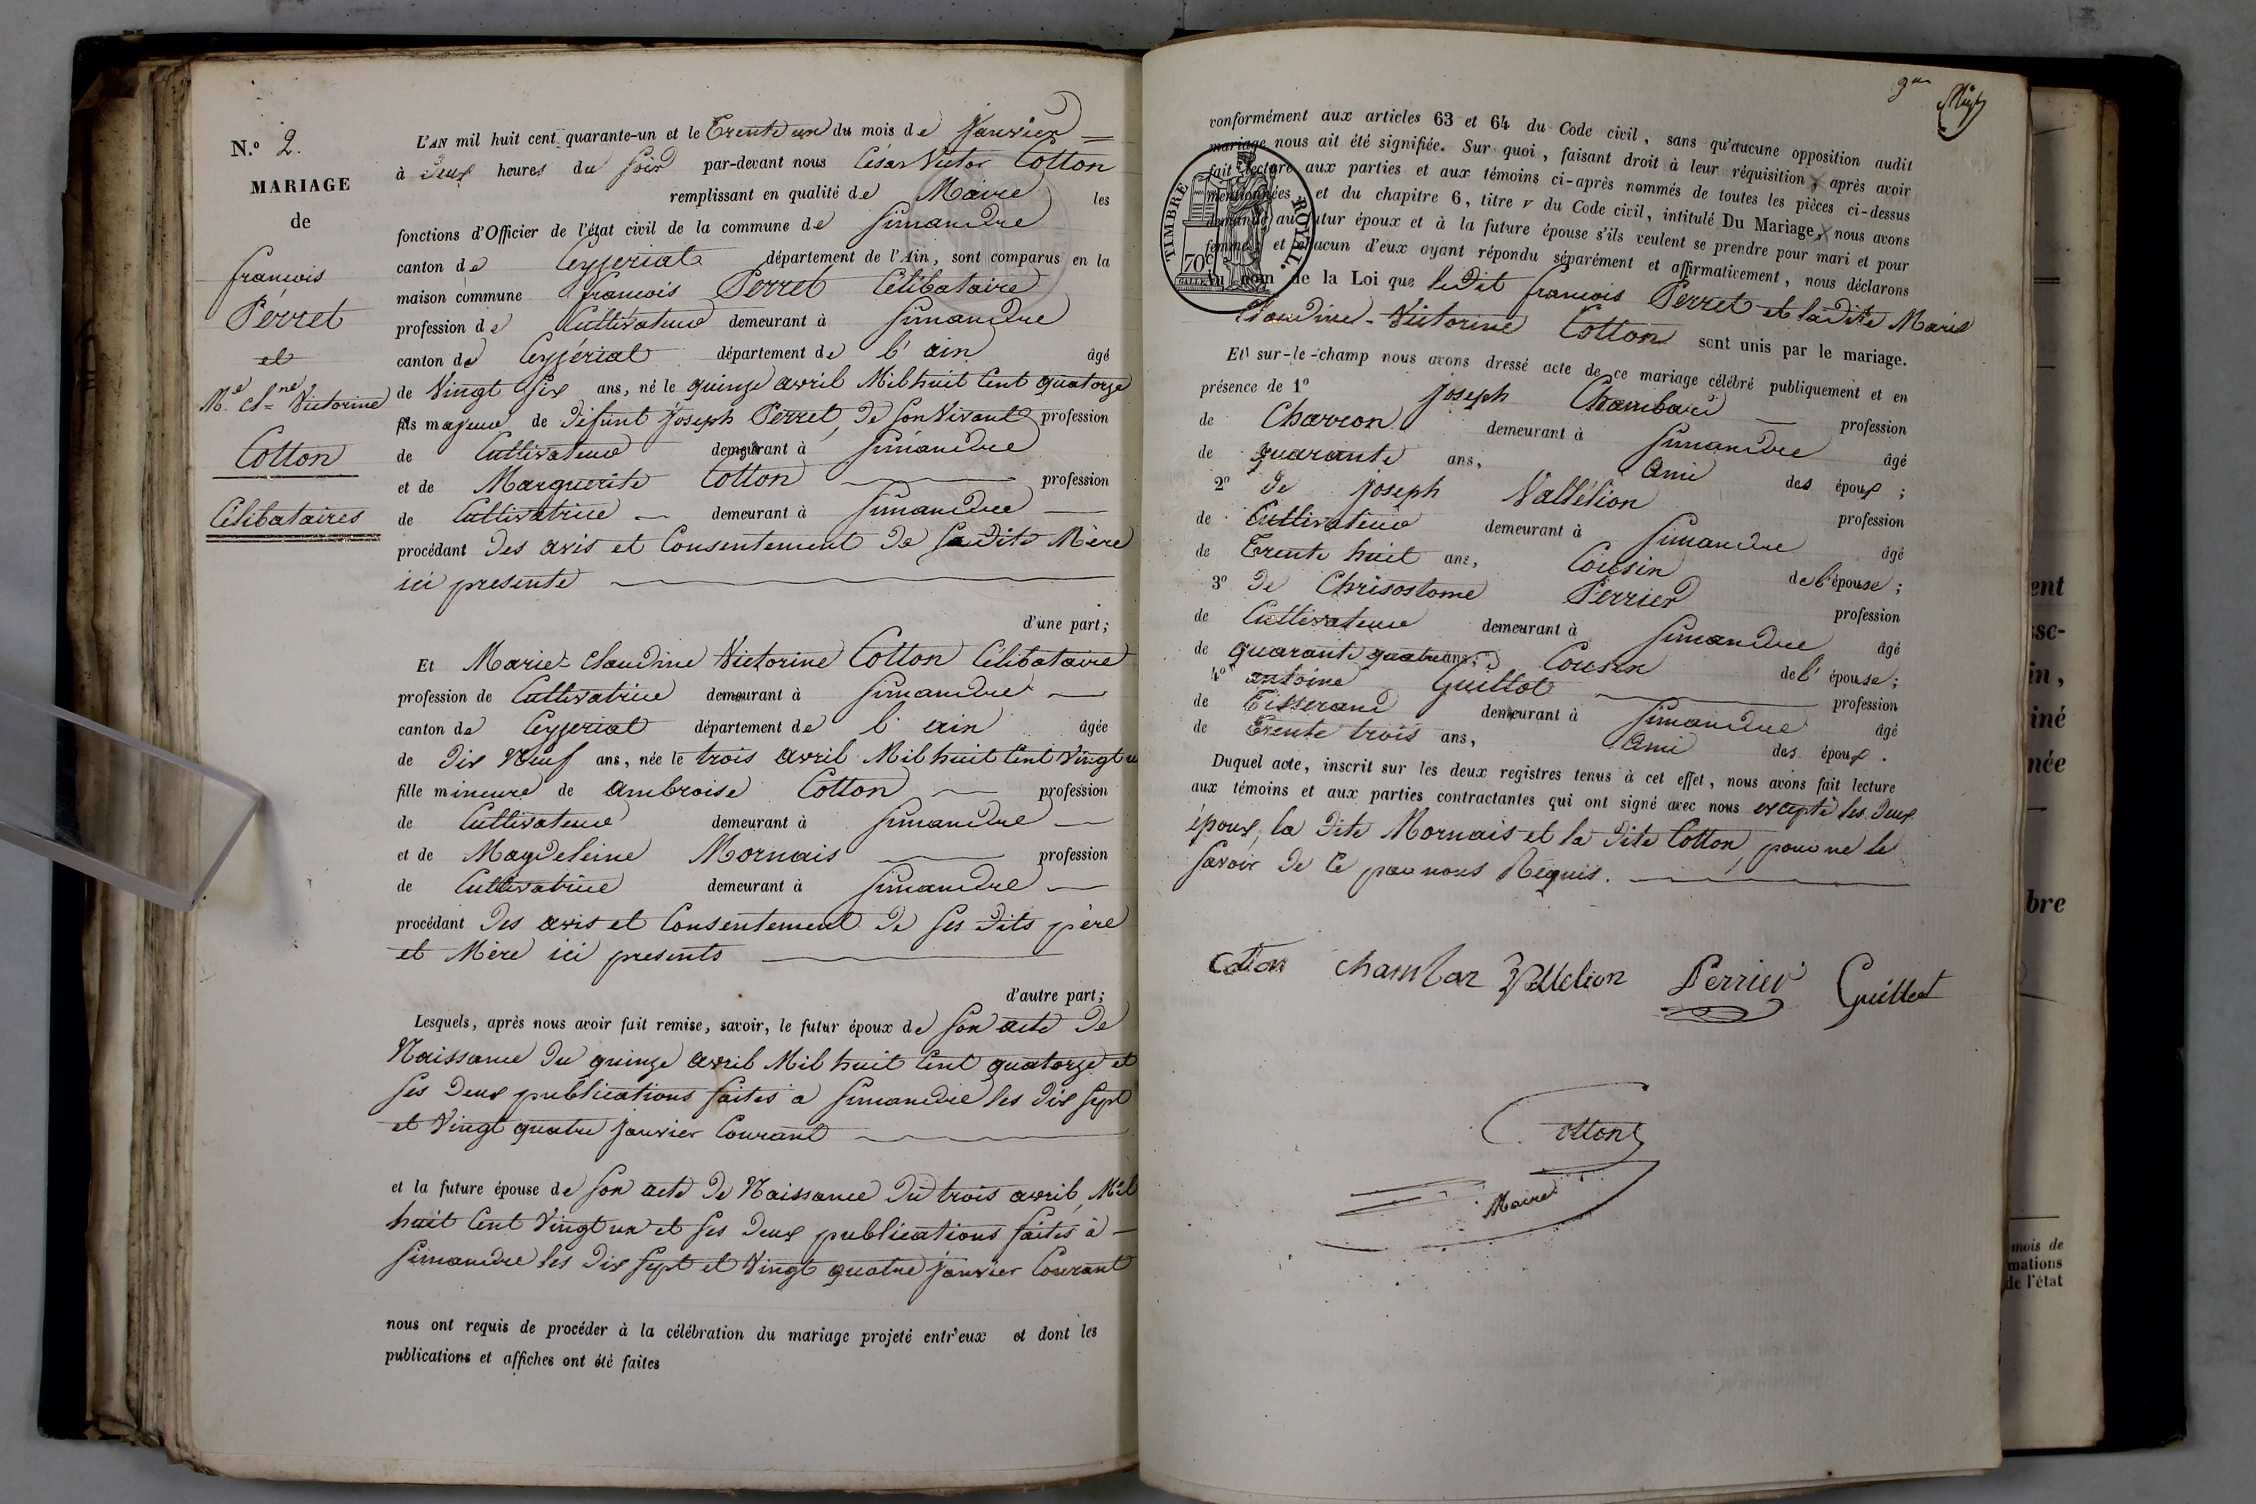 N.º 2.
MARIAGE
de
françois
Perret
et
M.e Cl.ne Victorine
Cotton
Célibataires
L'AN mil huit cent quarante-un et le Trente un du mois de Janvier
à Deux heures du Soir par-devant nous César Victor Cotton
remplissant en qualité de Maire les
fonctions d'Officier de l'état civil de la commune de Simandre
canton de Ceyzeriat département de l'Ain, sont comparus en la
maison commune françois Perret Célibataire
profession de Cultivateur demeurant à Simandre
canton de Ceyzériat département de l'ain âgé
de Vingt Six ans, né le quinze avril Mil huit Cent quatorze
fils majeur de Défunt Joseph Perret, De Son Vivant profession
de Cultivateur demeurant à Simandre
et de Marguerite Cotton profession
de Cultivatrice demeurant à Simandre
procédant Des avis et Consentement De Saudite Mère
ici presente
d'une part;
Et Marie Claudine Victorine Cotton Célibataire
profession de Cultivatrice demeurant à Simandre
canton de Ceyzeriat département de l'ain âgée
de Dix Neuf ans, née le trois avril Mil huit Cent Vingt u
fille mineure de Ambroise Cotton profession
de Cultivateur demeurant à Simandre
et de Magdeleine Mornais profession
de Cultivatrice demeurant à Simandre
procédant Des avis et Consentement De Ses Dits père
et Mère ici presents
d'autre part;
Lesquels, après nous avoir fait remise, savoir, le futur époux de Son acte De
Naissance Du quinze avril Mil huit Cent quatorze et
Ses Deux publications faites à Simandre les Dix Sept
et Vingt quatre janvier Courant
et la future épouse de Son acte De Naissance Du trois avril, Mil
huit Cent Vingt un et Ses Deux publications faites à
Simandre les Dix Sept et Vingt quatre janvier Courant
nous ont requis de procéder à la célébration du mariage projeté entr'eux et dont les
publications et affiches ont été faites
conformément aux articles 63 et 64 du Code civil, sans qu'aucune opposition audit
mariage nous ait été signifiée. Sur quoi, faisant droit à leur réquisition, après avoir
fait lecture aux parties et aux témoins ci-après nommés de toutes les pièces ci-dessus
mentionnées et du chapitre 6, titre v du Code civil, intitulé Du Mariage, nous avons
demandé au futur époux et à la future épouse s'ils veulent se prendre pour mari et pour
femme; et chacun d'eux ayant répondu séparément et affirmativement, nous déclarons
au nom de la Loi que le Dit françois Perret et la Dite Marie
Claudine Victorine Cotton sont unis par le mariage.
Et sur-le-champ nous avons dressé acte de ce mariage célébré publiquement et en
présence de 1º Joseph Chambard profession
de Charron demeurant à Simandre âgé
de quarante ans, Ami des époux;
2º De Joseph Vallélion profession
de Cultivateur demeurant à Simandre âgé
de Trente huit ans, Cousin de l'épouse;
3º De Chrisostome Perrier profession
de Cultivateur demeurant à Simandre âgé
de quarante quatre ans; Cousin de l'épouse;
4º antoine Guillot profession
de Tisserand demeurant à Simandre âgé
de Trente trois ans, Ami des époux.
Duquel acte, inscrit sur les deux registres tenus à cet effet, nous avons fait lecture
aux témoins et aux parties contractantes qui ont signé avec nous excepté les Deux
époux, la Dite Mornais et la Dite Cotton, pour ne le
Savoir De Ce par nous Réquis.
Cotton Chambar Vallelion Perrier Guillot
Cotton
Maire
TIMBRE ROYAL.
70c
ent
sc-
in,
iné
née
bre
mois de
mations
de l'état